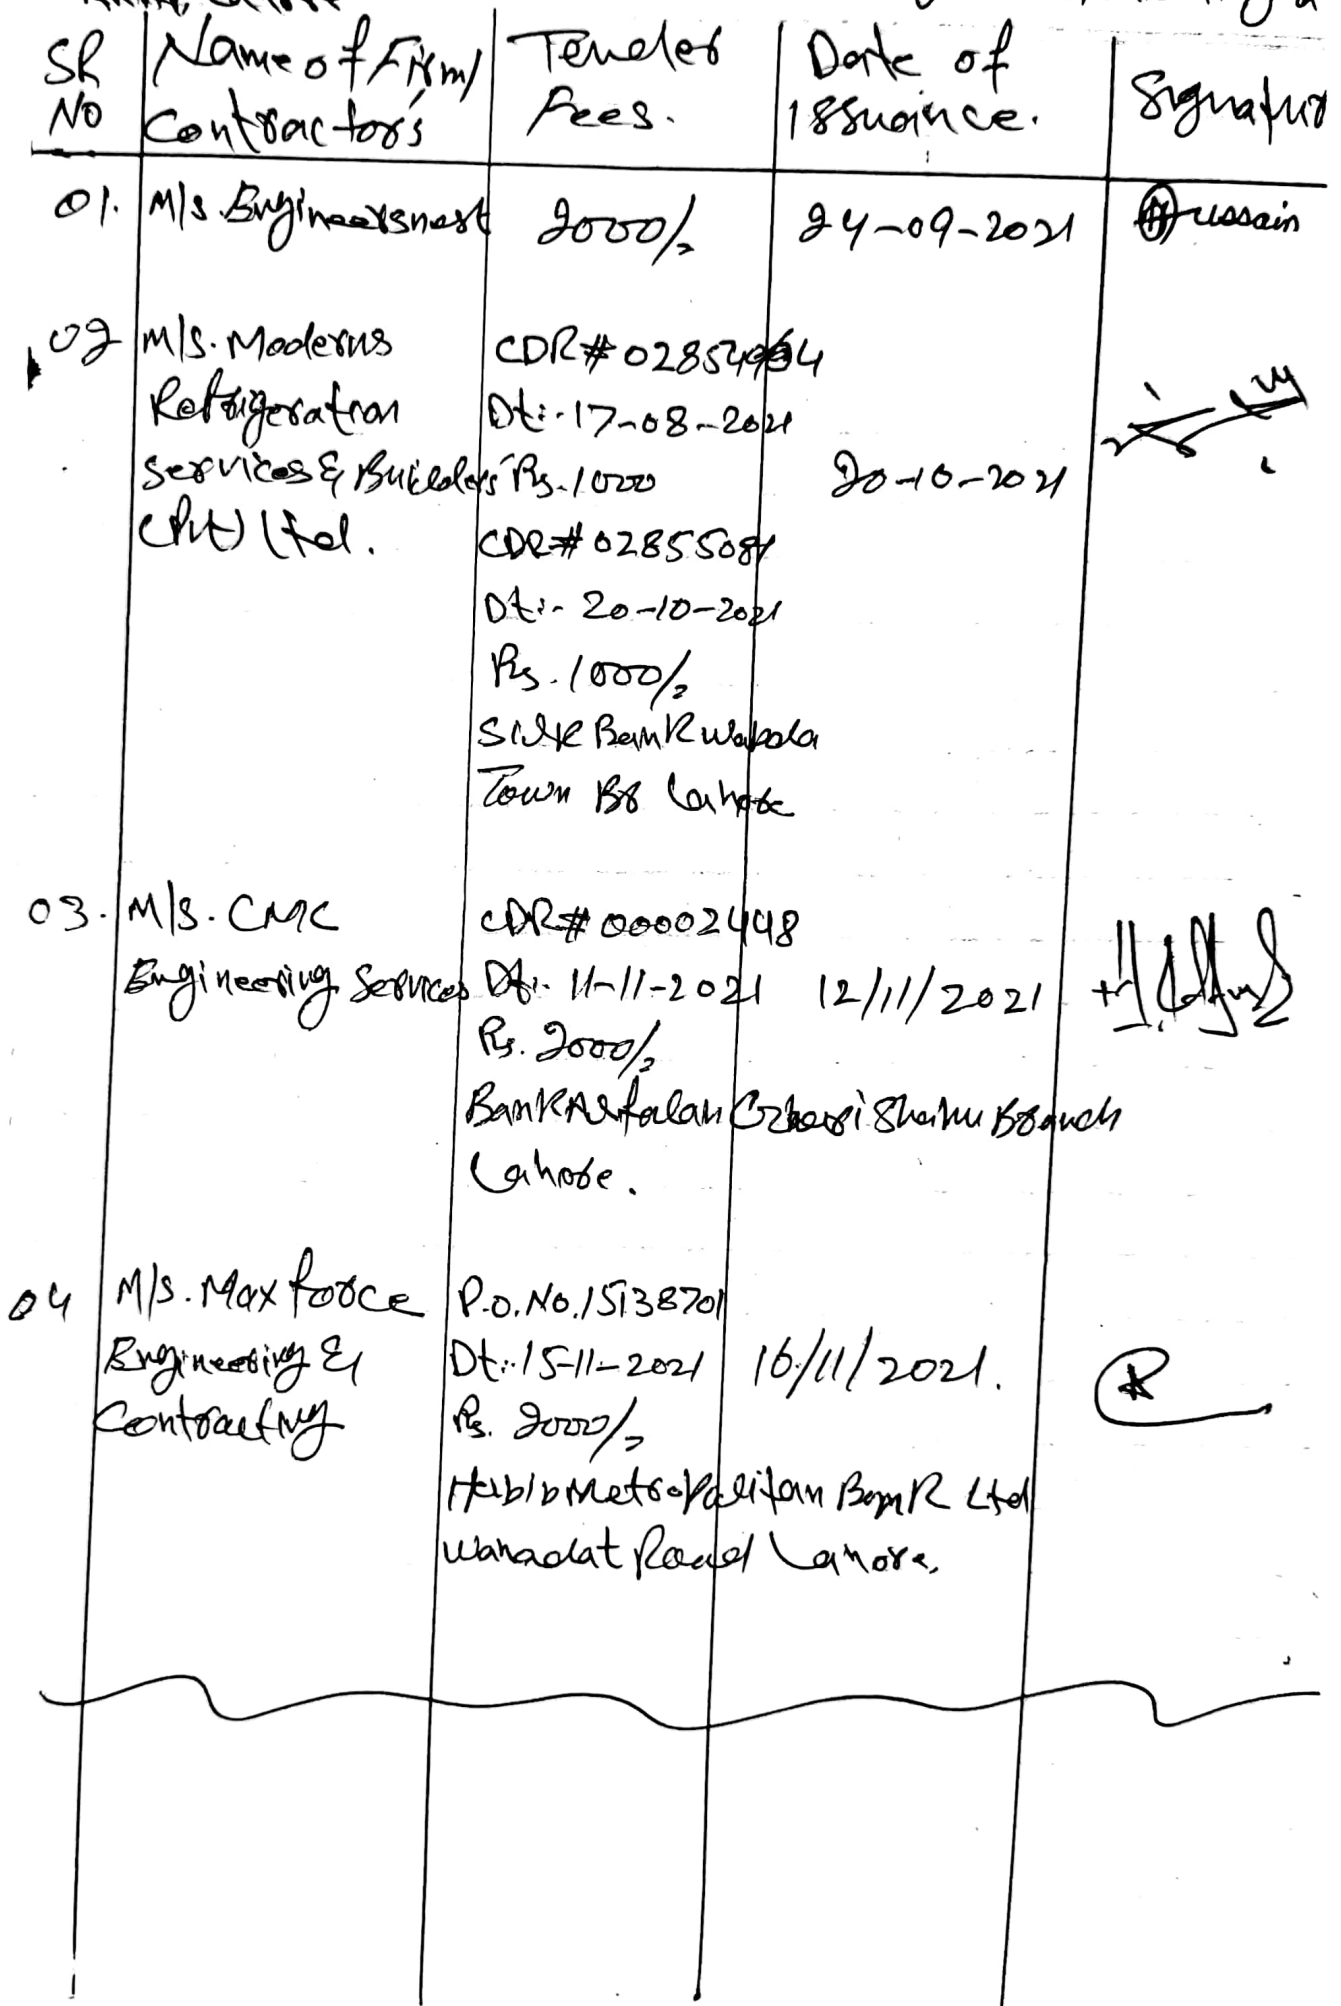 Sr No | Name of Firm/ Contractor's | Tender Fees. | Date of Issuance. | Signatur
01. | M/s. Engineersnest | 2000/= | 24-09-2021 | Hussain
02 | M/s. Moderns
Refrigeration
Services & Builders
(Pvt) Ltd.
CDR# 02854964
Dt:- 17-08-2021
Rs. 1000
CDR# 02855081
Dt:- 20-10-2021
Rs. 1000/=
Silk Bank Wapda
Town Br Lahore
20-10-2021
03. | M/s. CMC
Engineering Services
CDR# 00002448
Dt:- 11-11-2021
Rs. 2000/=
Bank Alfalah Gharri Shahu Branch
Lahore.
12/11/2021
04 | M/s. Max force
Engineering &
Contracting
P.O. No. 15138701
Dt:- 15-11-2021
Rs. 2000/=
Habib Metropolitan Bank Ltd
Wahadat Road Lahore.
16/11/2021.